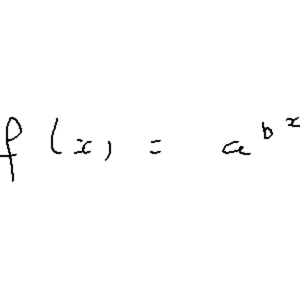 f(x) = a^{b^x}